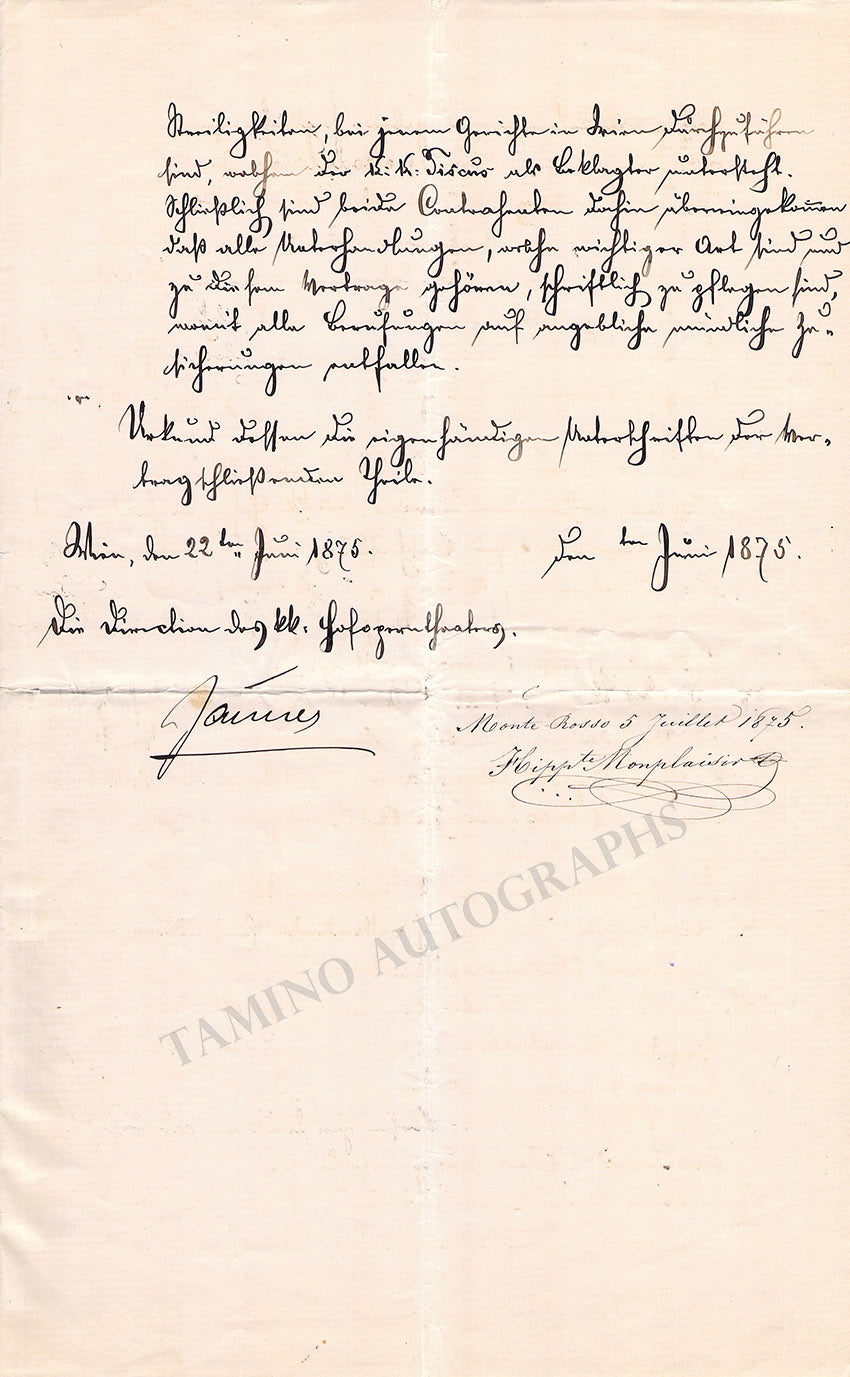 Streitigkeiten, bei jenem Gerichte in Wien durchzuführen
sind, welchem der k: k: Fiscus als Beklagter untersteht.
Schließlich sind beide Contrahenten dahin übereingekom̄en
daß alle Unterhandlungen, welche wichtiger Art sind und
zu diesem Vertrage gehören, schriftlich zu pflegen sind,
womit alle Berufungen auf angebliche mündliche Zu=
sicherungen entfallen.
Urkund dessen die eigenhändigen Unterschriften der Ver=
tragschließenden Theile.
Wien, den 22ten Juni 1875.
den ten Juni 1875.
Die Direction des kk. Hofoperntheaters.
Jauner
Monte Rosso 5 Juillet 1875.
Hippte Monplaisir
TAMINO AUTOGRAPHS